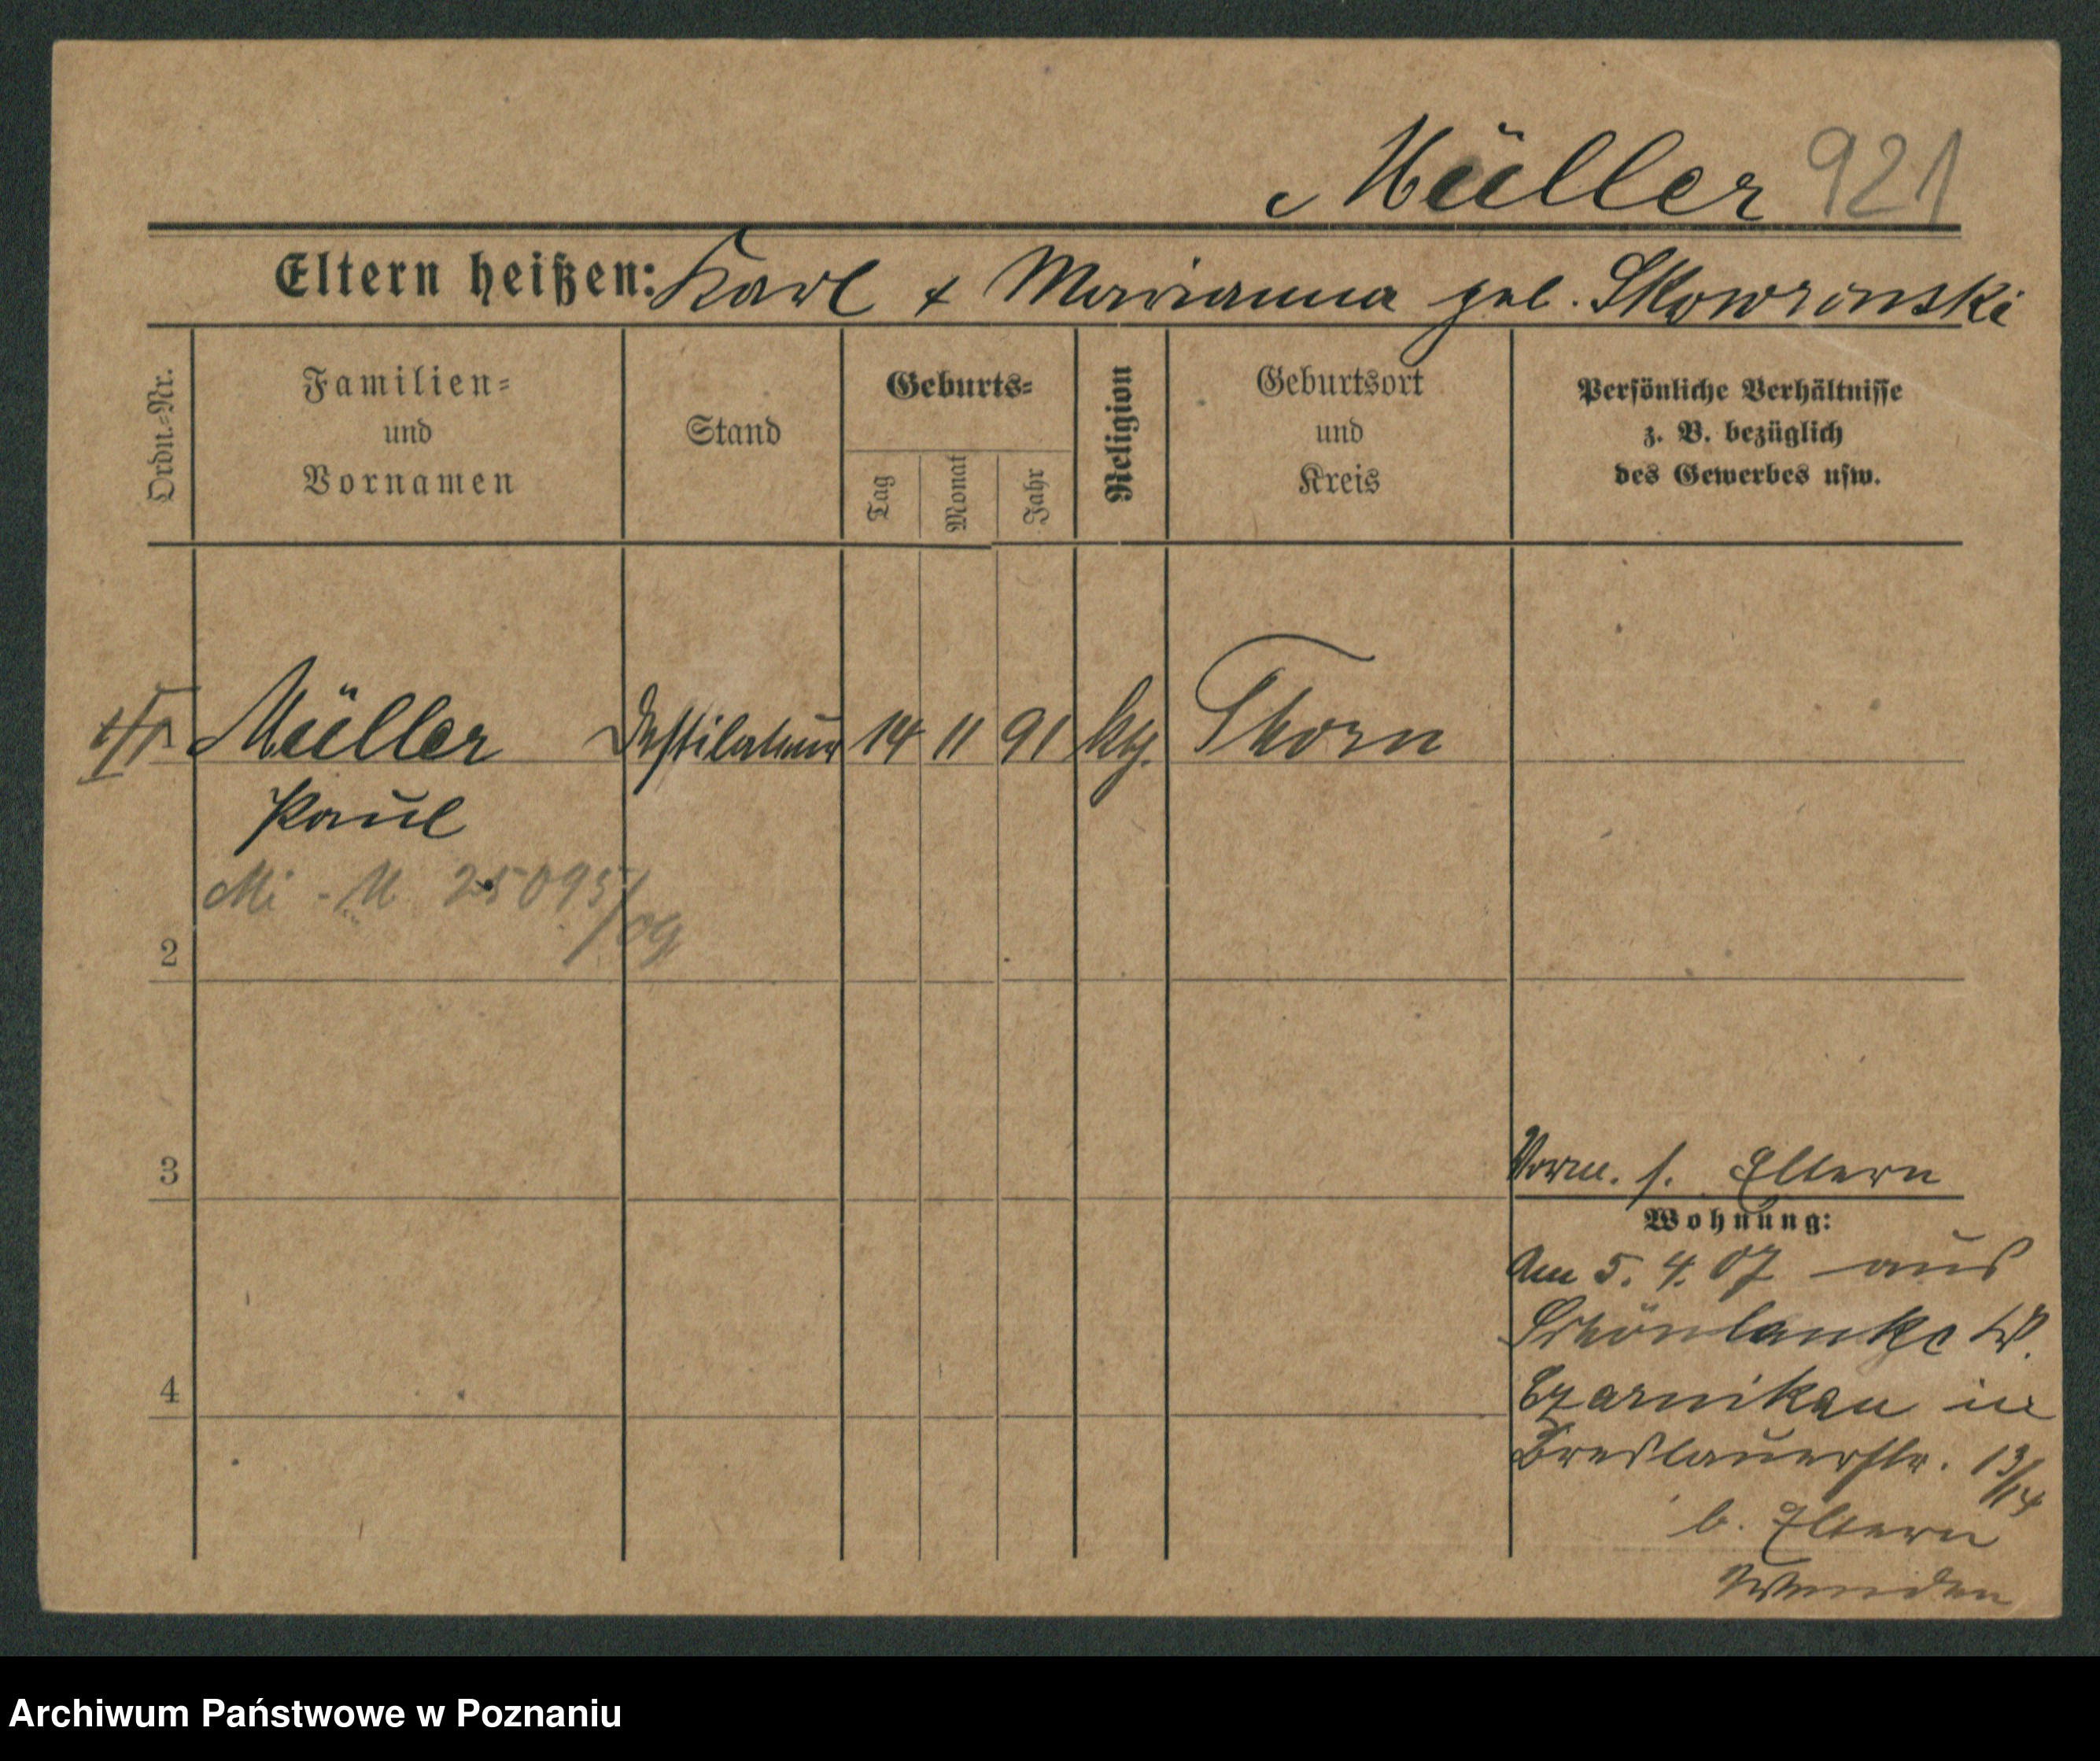 Müller 921
Eltern heißen: Karl + Marianna geb. Skowronski
Ordn.-Nr.
Familien-
und
Vornamen
Stand
Geburts-
Tag
Monat
Jahr
Religion
Geburtsort
und
Kreis
Persönliche Verhältnisse
z. B. bezüglich
des Gewerbes usw.
Müller Destillateur 14 11 91 kg. Thorn
Paul
Mi - M 25095/09
2
3
Vorm. s. Eltern
Wohnung:
Am 5. 4. 07 aus
Schönlanke
Czarnikau in
4
Breslauerstr. 13/14
b. Eltern
Wenden
Archiwum Państwowe w Poznaniu